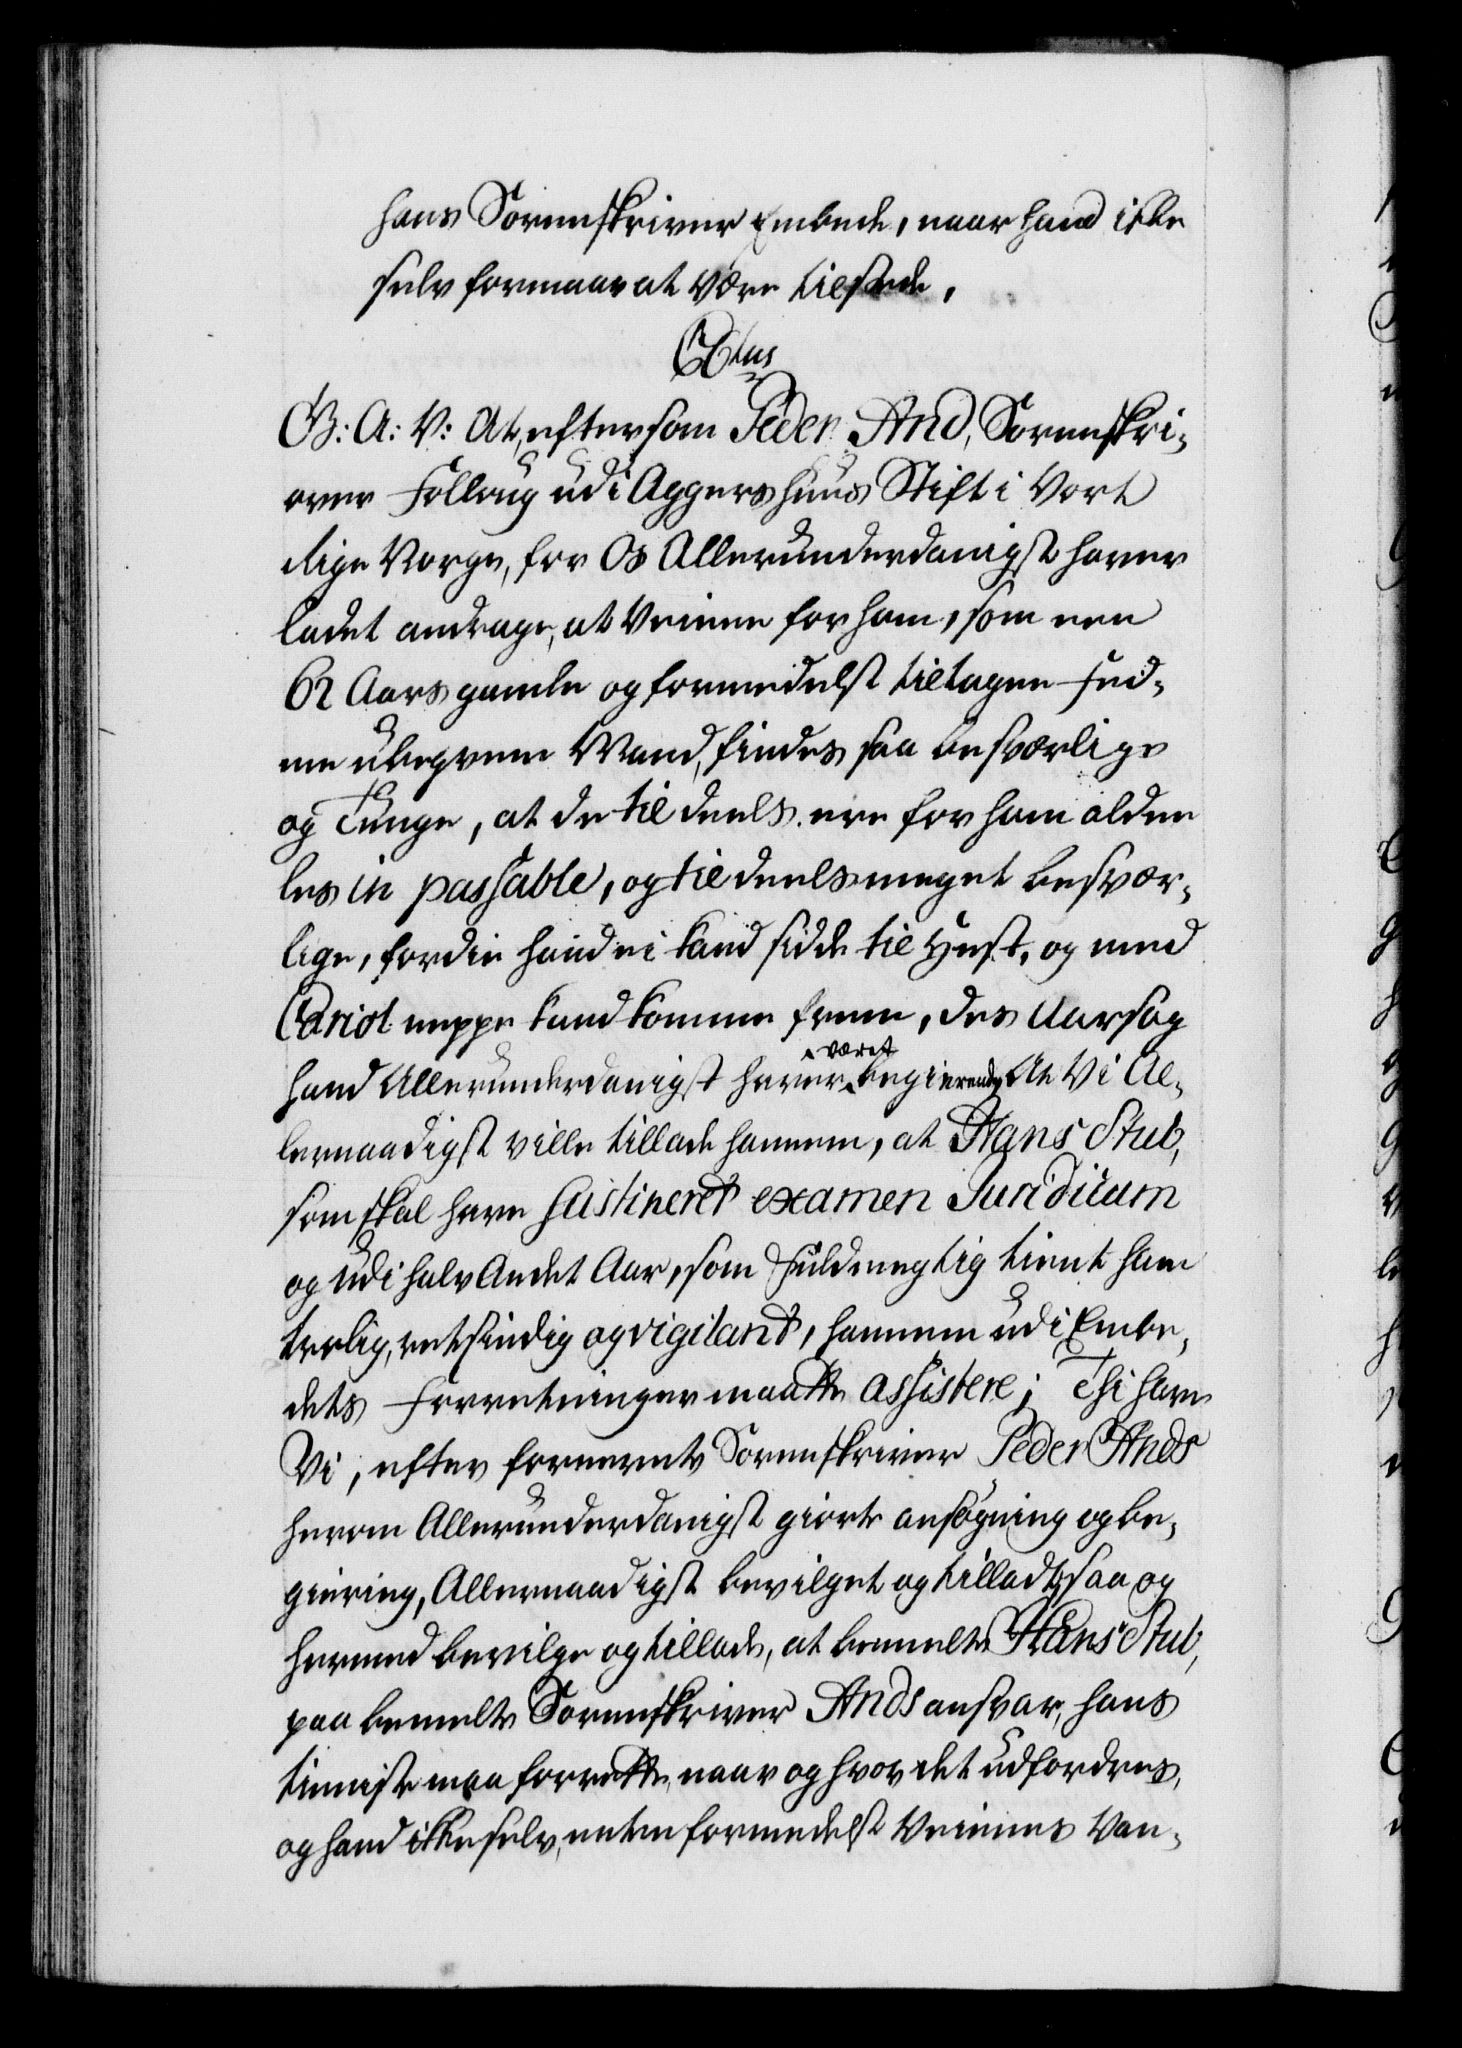 hans Sorenskriver Embede, naar hand ikke
selv formaar at være tilstede.
Ctus
G: A: V: At, eftersom Peder And, Sorenskri-
over Folloug udi Aggershuus Stift i Vort
Rige Norge, for Os Allerunderdanigst haver
ladet andrage, at Veiene for ham, som een
62 Aars gamle og formedelst tiltagen Feed-
me ubeqvem Mand, findes saa besværlige
og Tunge, at de til deels ere for ham aldee
les in passable, og til deels meget besvær-
lige, fordie hand ei kand sidde til Hest, og med
Cariol neppe kand komme frem, des Aarsag
hand Allerunderdanigst haver været begierende, At Vi Al-
lernaadigst ville tillade hannem, at Hans Stub,
som skal have sustineret examen Juridicum
og udi halv Andet Aar, som Fuldmegtig tient ham
troelig, retsindig og vigilant, hannem udi Embe-
dets Forretninger maatte assistere; Thi have
Vi, efter fornevnte Sorenskriver Peder Ands
herom Allerunderdanigst giorte ansøgning og be-
giering, Allernaadigst bevilget og tilladt, saa og
hermed bevilge og tillade, at bemelte Hans Stub,
paa bemelte Sorenskriver Ands ansvar, hans
tieniste maa forrette, naar og hvor det udfordres,
og hand ikke selv, enten formedelst Veienes Van-